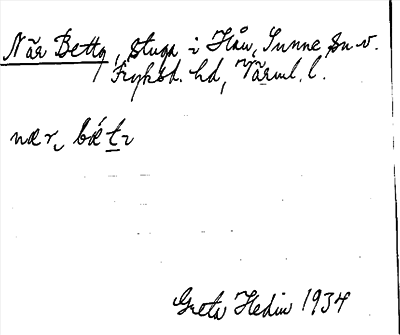 När Betta, stuga i Hån, Sunne sn v.
Fryksd. hd, Värml. l.
nær, bǽt
Greta Hedin 1934